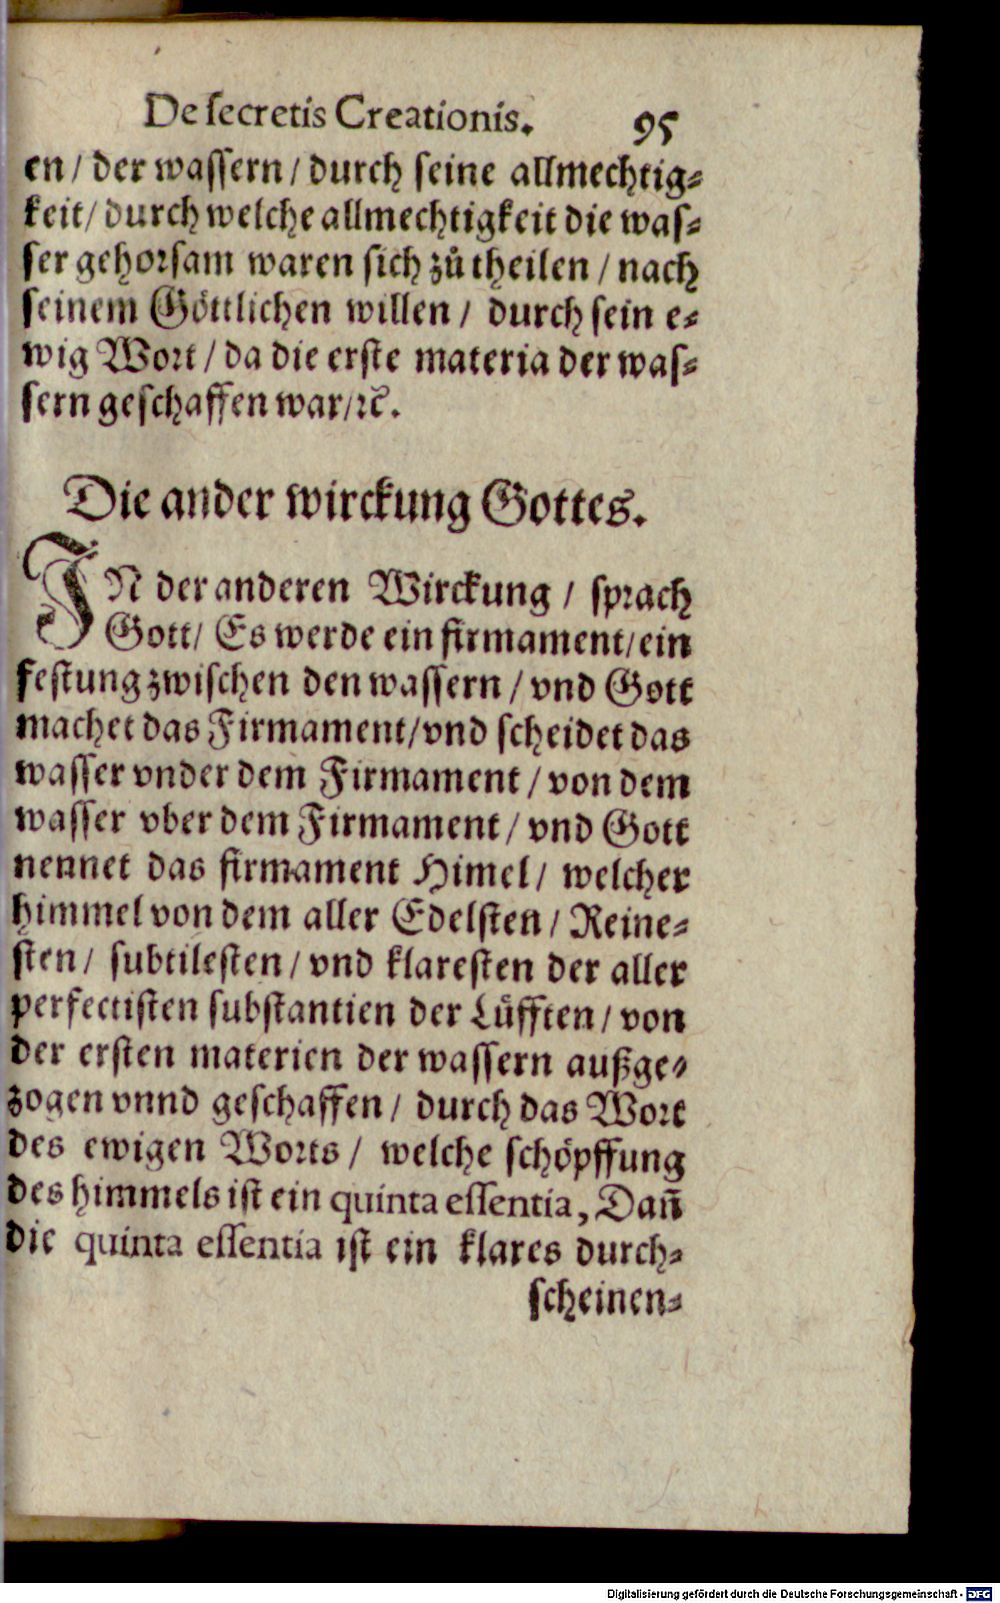 De ſecretis Creationis. 95
en / der waſſern / durch ſeine allmechtig⸗
keit / durch welche allmechtigkeit die waſ⸗
ſer gehorſam waren ſich zů theilen / nach
ſeinem Göttlichen willen / durch ſein e⸗
wig Wort / da die erſte materia der waſ⸗
ſern geſchaffen war / ꝛc̃.
Die ander wirckung Gottes.
IN der anderen Wirckung / ſprach
Gott / Es werde ein firmament / ein
feſtung zwiſchen den waſſern / vnd Gott
machet das Firmament / vnd ſcheidet das
waſſer vnder dem Firmament / von dem
waſſer vber dem Firmament / vnd Gott
nennet das firmament Himel / welcher
himmel von dem aller Edelſten / Reine⸗
ſten / ſubtileſten / vnd klareſten der aller
perfectiſten ſubſtantien der Lüfften / von
der erſten materien der waſſern außge⸗
zogen vnnd geſchaffen / durch das Wort
des ewigen Worts / welche ſchöpffung
des himmels iſt ein quinta eſſentia, Dañ
die quinta eſſentia iſt ein klares durch⸗
ſcheinen⸗
Digitalisierung gefördert durch die Deutsche Forschungsgemeinschaft - DFG